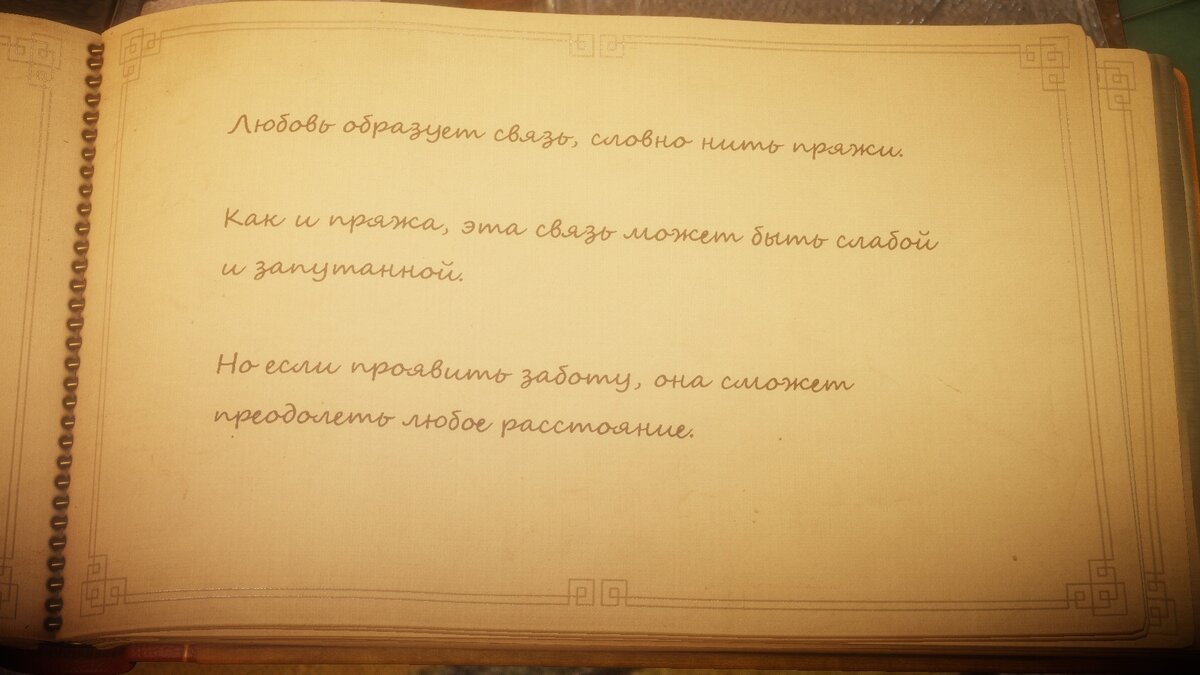 Любовь образует связь, словно нить пряжи.
Как и пряжа, эта связь может быть слабой
и запутанной.
Но если проявить заботу, она сможет
преодолеть любое расстояние.